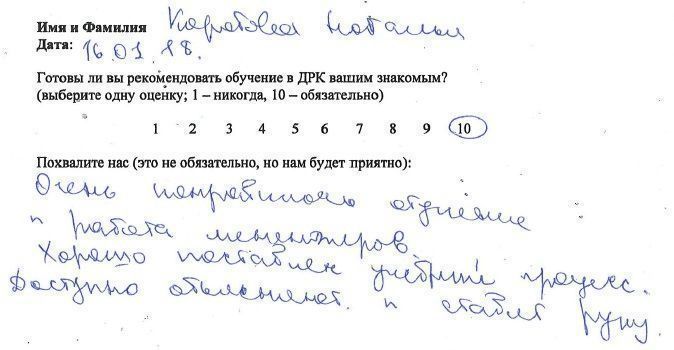 Имя и Фамилия Каратова Наталья
Дата: 16.01.18.
Готовы ли вы рекомендовать обучение в ДРК вашим знакомым?
(выберите одну оценку; 1 – никогда, 10 – обязательно)
1 2 3 4 5 6 7 8 9 10
Похвалите нас (это не обязательно, но нам будет приятно):
Очень понравилось обучение
и работа менеджеров.
Хорошо поставлен учебный процесс.
Доступно объясняют и ставят руку.